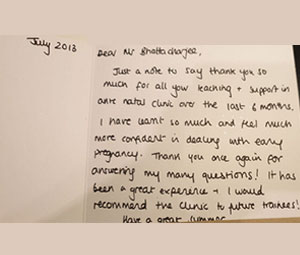 July 2013
Dear Mr Bhattacharjee,
Just a note to say thank you so
much for all your teaching + support in
ante natal clinic over the last 6 months.
I have learnt so much and feel much
more confident in dealing with early
pregnancy. Thank you once again for
answering my many questions! It has
been a great experience + I would
recommend the clinic to future trainees!
Have a great summer